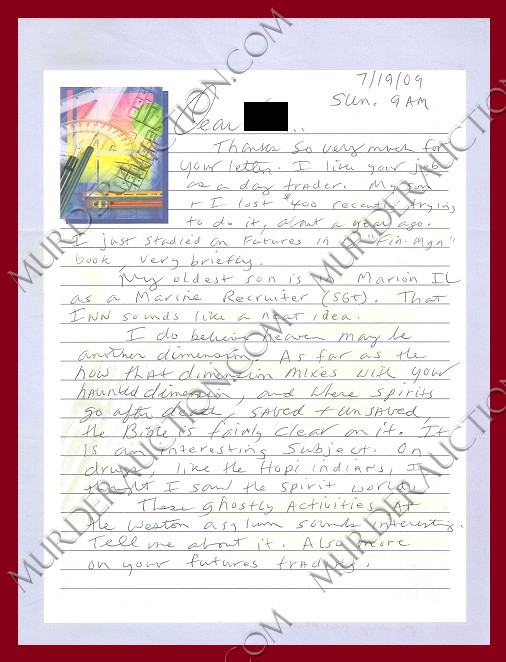 7/19/09
Sun. 9AM
Dear ..
Thanks so very much for
your letter. I like your job
as a day trader. My son
+ I lost $400 recently trying
to do it, about a year ago.
I just studied on Futures in a "Fin. Mgn"
book, very briefly.
My oldest son is in Marion IL
as a Marine Recruiter (SGT). That
INN sounds like a neat idea.
I do believe heaven may be
another dimension. As far as the
how that dimension mixes with your
haunted dimension, and where spirits
go after death, saved + unsaved,
the Bible is fairly clear on it. It
is an interesting subject. On
drugs, like the Hopi indians, I
thought I saw the spirit world.
These ghostly activities at
the Weston asylum sounds interesting.
Tell me about it. Also more
on your futures trading.
MURDERAUCTION.COM